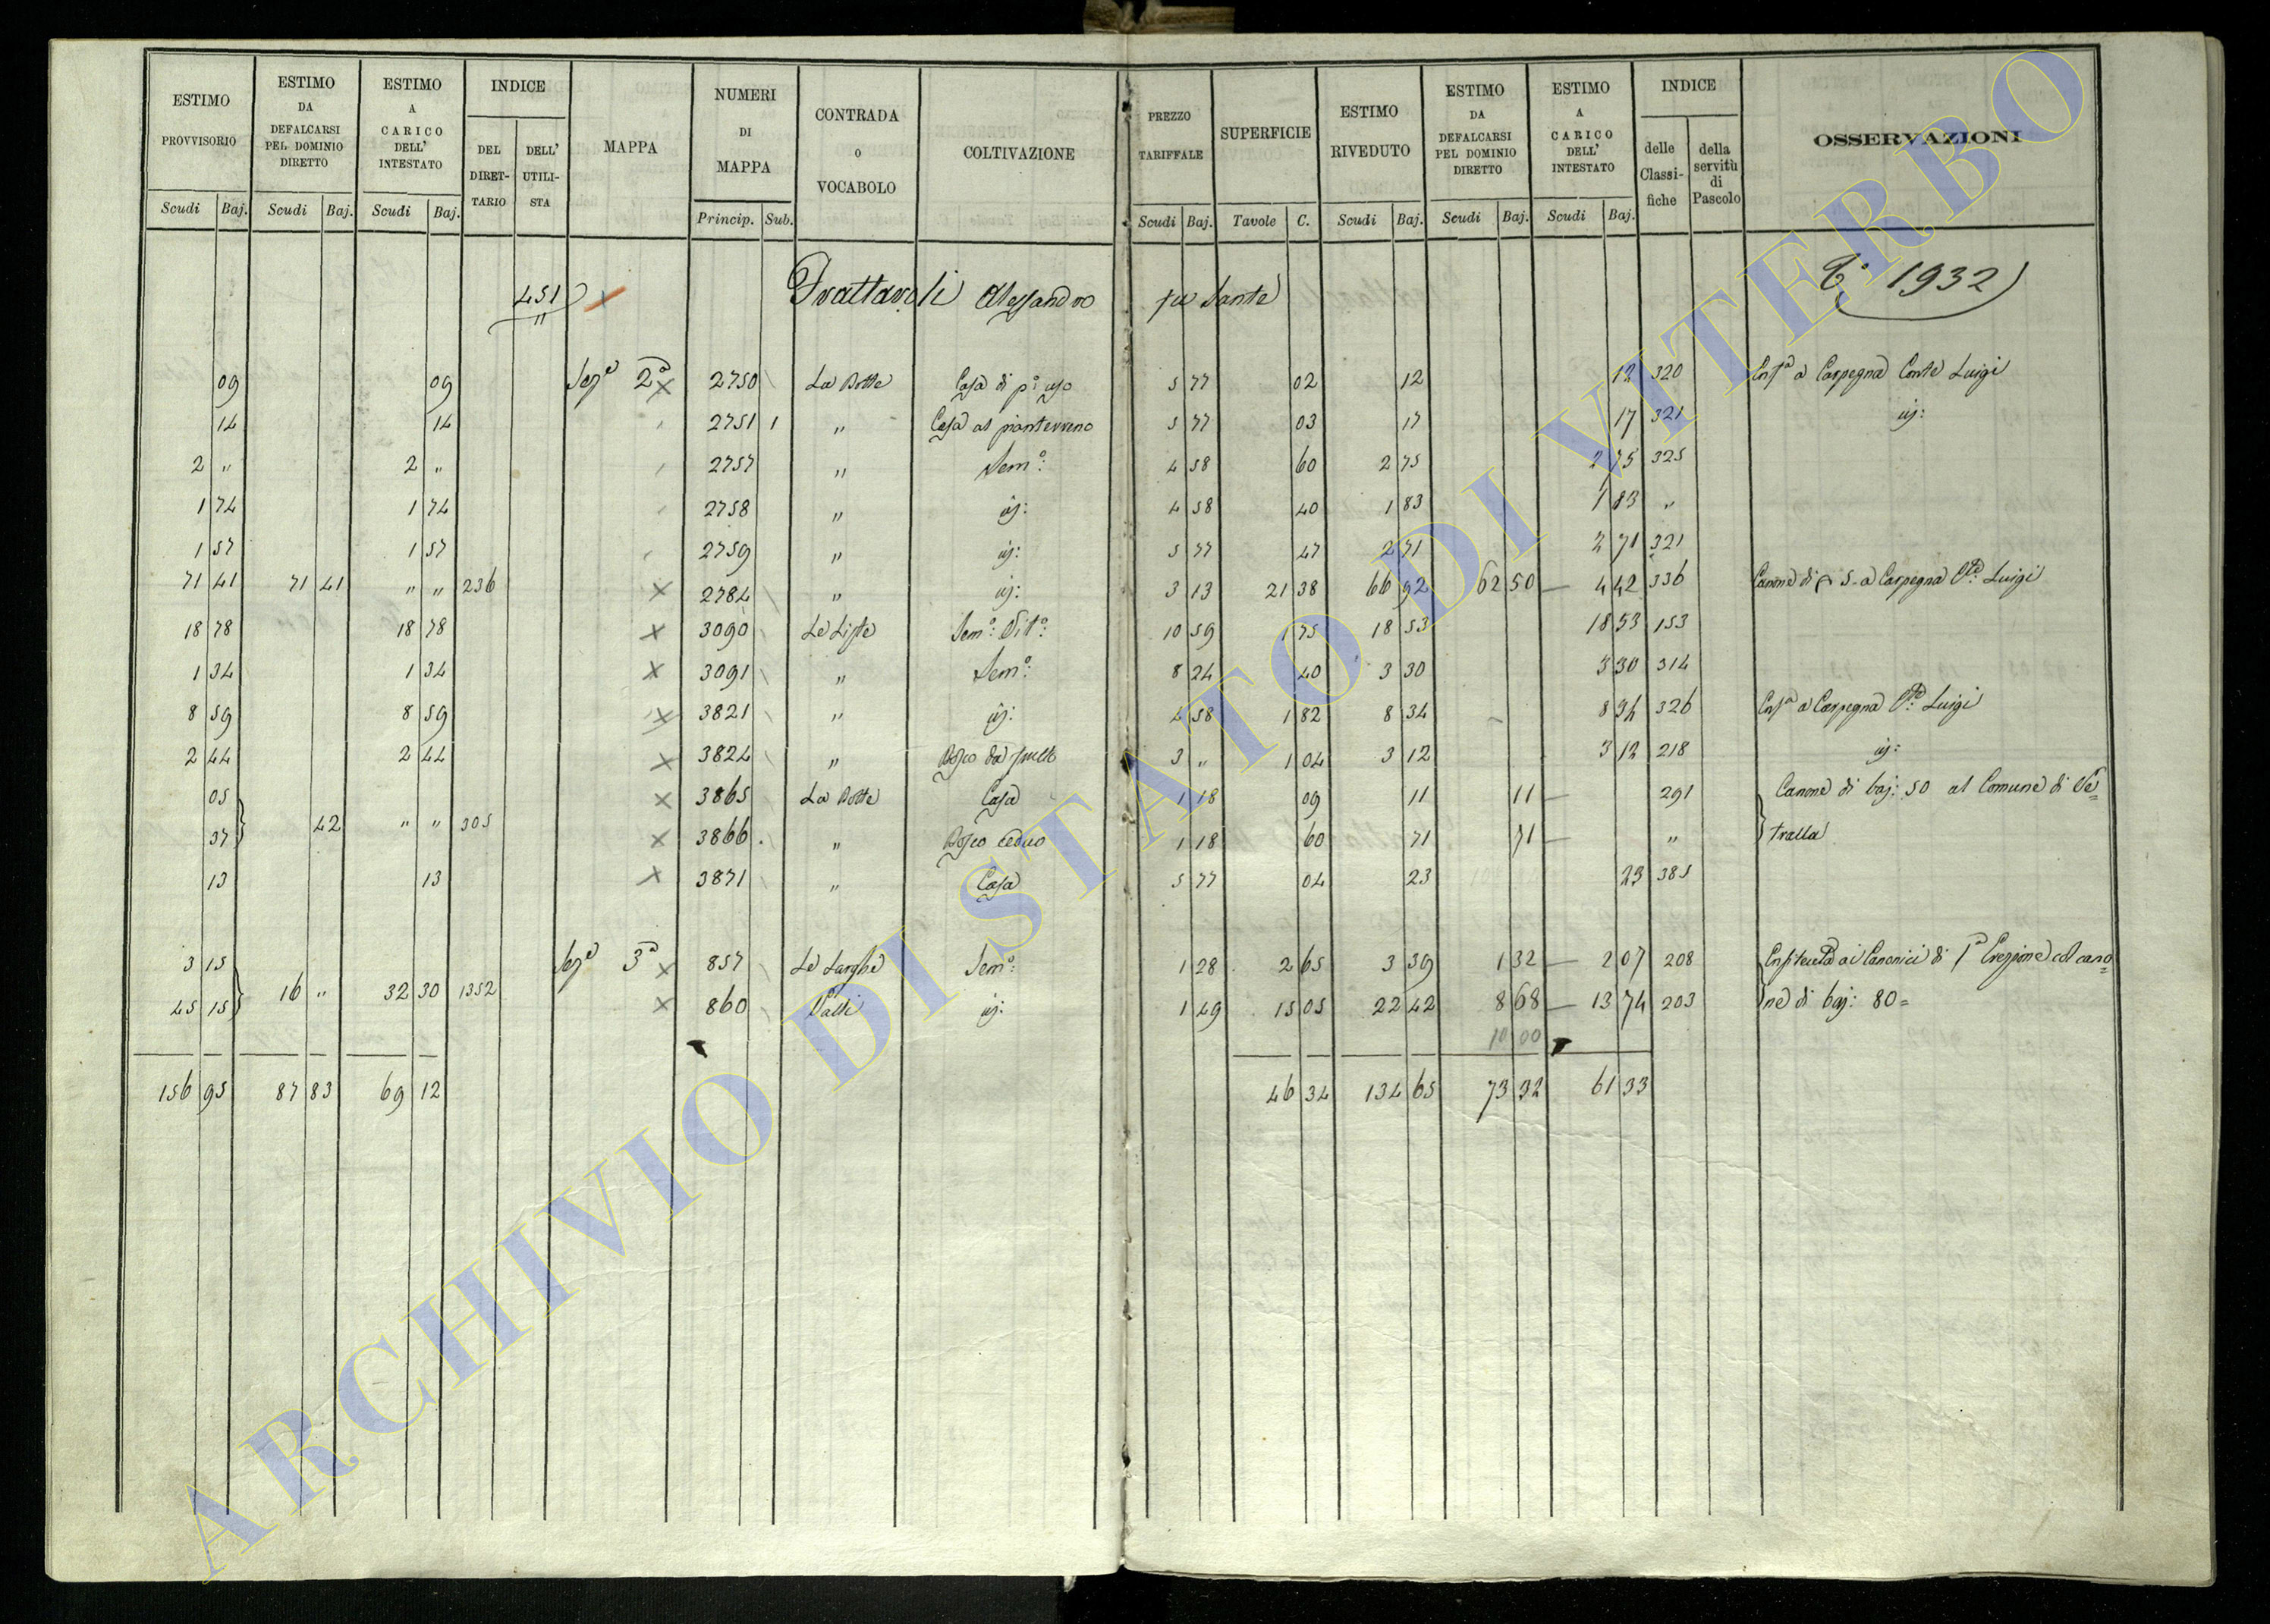 ESTIMO PROVVISORIO ESTIMO DA DEFALCARSI PEL DOMINIO DIRETTO ESTIMO A CARICO DELL' INTESTATO INDICE DEL DIRET-TARIO DELL' UTILI-STA MAPPA NUMERI DI MAPPA CONTRADA O VOCABOLO COLTIVAZIONE PREZZO TARIFFALE SUPERFICIE ESTIMO RIVEDUTO ESTIMO DA DEFALCARSI PEL DOMINIO DIRETTO ESTIMO A CARICO DELL' INTESTATO INDICE delle Classi-fiche della servitù di Pascolo OSSERVAZIONI
Scudi Baj. Scudi Baj. Scudi Baj. Princip. Sub. Scudi Baj. Tavole C. Scudi Baj. Scudi Baj. Scudi Baj.
451 Alessandro fu Sante 1932
09 09 Sez.e 2a 2750 La Botte Casa di p.o uso 5 77 02 12 12 320 Enf.a a Carpegna Conte Luigi
14 14 2751 1 " Casa al pianterreno 5 77 03 17 17 321 id:
2 " 2 " 2757 " Sem.o: 4 58 60 2 75 2 75 325
1 74 1 74 2758 " id: 4 58 40 1 83 1 83 "
1 57 1 57 2759 " id: 5 77 47 2 71 2 71 321
71 41 71 41 " " 236 2784 " id: 3 13 21 38 66 92 62 50 4 42 336 Canone di 5 a Carpegna C.te Luigi
18 78 18 78 3090 Le Liste Sem.o: Vit.o: 10 59 1 75 18 53 18 53 153
1 34 1 34 3091 " Sem.o: 8 24 40 3 30 3 30 314
8 59 8 59 3821 " id: 4 58 1 82 8 34 8 34 326 Enf.a a Carpegna C.te Luigi
2 44 2 44 3824 " Bosco da frutto 3 " 1 04 3 12 3 12 218 id:
05 3865 La Botte Casa 1 18 09 11 11 291 Canone di baj: 50 al Comune di Ve=
37 42 " " 305 3866 " Bosco ceduo 1 18 60 71 71 " tralla
13 13 3871 " Casa 5 77 04 23 23 385
3 15 Sez.e 3a 857 Le Larghe Sem.o: 1 28 2 65 3 39 1 32 2 07 208 Enfiteuta ai Canonici di 1a Erezione col cano=
45 15 16 " 32 30 1352 860 Valli id: 1 49 15 05 22 42 8 68 13 74 203 ne di baj: 80=
10 00
156 95 87 83 69 12 46 34 134 65 73 32 61 33
ARCHIVIO DI STATO DI VITERBO